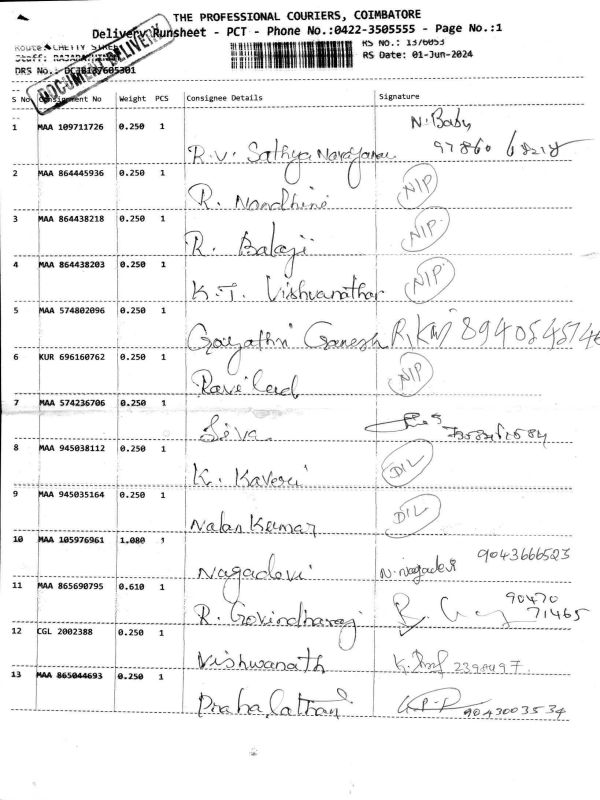 THE PROFESSIONAL COURIERS, COIMBATORE
Delivery Runsheet - PCT - Phone No.:0422-3505555 - Page No.:1
Route: CHETTY STREET
RS No.: 1376053
Staff:
RS Date: 01-Jun-2024
DRS No.:
DOCUMENT DELIVERY
S No Consignment No Weight PCS Consignee Details Signature
1 MAA 109711726 0.250 1 R.V. Sathya Narayanan N. Baby 97860
2 MAA 864445936 0.250 1 R. Nandhini NIP
3 MAA 864438218 0.250 1 R. Balaji NIP
4 MAA 864438203 0.250 1 K.T. Vishvanathar NIP
5 MAA 574802096 0.250 1 Gayathri Ganesh
6 KUR 696160762 0.250 1 NIP
7 MAA 574236706 0.250 1 Siva
8 MAA 945038112 0.250 1 K. Kaveri DIL
9 MAA 945035164 0.250 1 Nalan Kumar DIL
10 MAA 105976961 1.080 1 Nagadevi N. Nagadevi 9043666523
11 MAA 865690795 0.610 1 R. Govindharaj 90470 71465
12 CGL 2002388 0.250 1 Vishwanath
13 MAA 865044693 0.250 1 9043003534